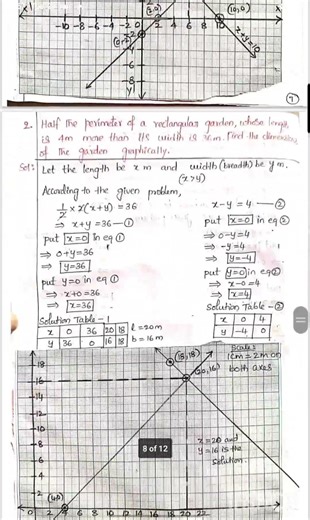 x1
-10 -8 -6 -4 -2 0 2 4 6 8 10
(10,0)
x+y=10
-4
-6
-8
7
2. Half the perimeter of a rectangular garden, whose length
is 4m more than its width is 36m. Find the dimensions
of the garden graphically.
Sol: Let the length be x m and width (breadth) be y m.
(x>y)
According to the given problem,
1/2 × 2(x+y) = 36
⇒ x+y = 36 — ①
put x=0 in eq ①
⇒ 0+y=36
⇒ y=36
put y=0 in eq ①
⇒ x+0=36
⇒ x=36
Solution Table - 1
x 0 36 20 18
y 36 0 16 18
l=20m
b=16m
x-y = 4 — ②
put x=0 in eq ②
⇒ 0-y=4
⇒ -y=4
⇒ y=-4
put y=0 in eq②
⇒ x-0=4
⇒ x=4
Solution Table - ②
x 0 4
y -4 0
Scale:
1cm = 2m on
both axes
(18,18)
(20,16)
18
16
14
12
10
8
6
4
2
x=20 and
y=16 is the
solution.
8 of 12
(4,0)
0 2 4 6 8 10 12 14 16 18 20 22